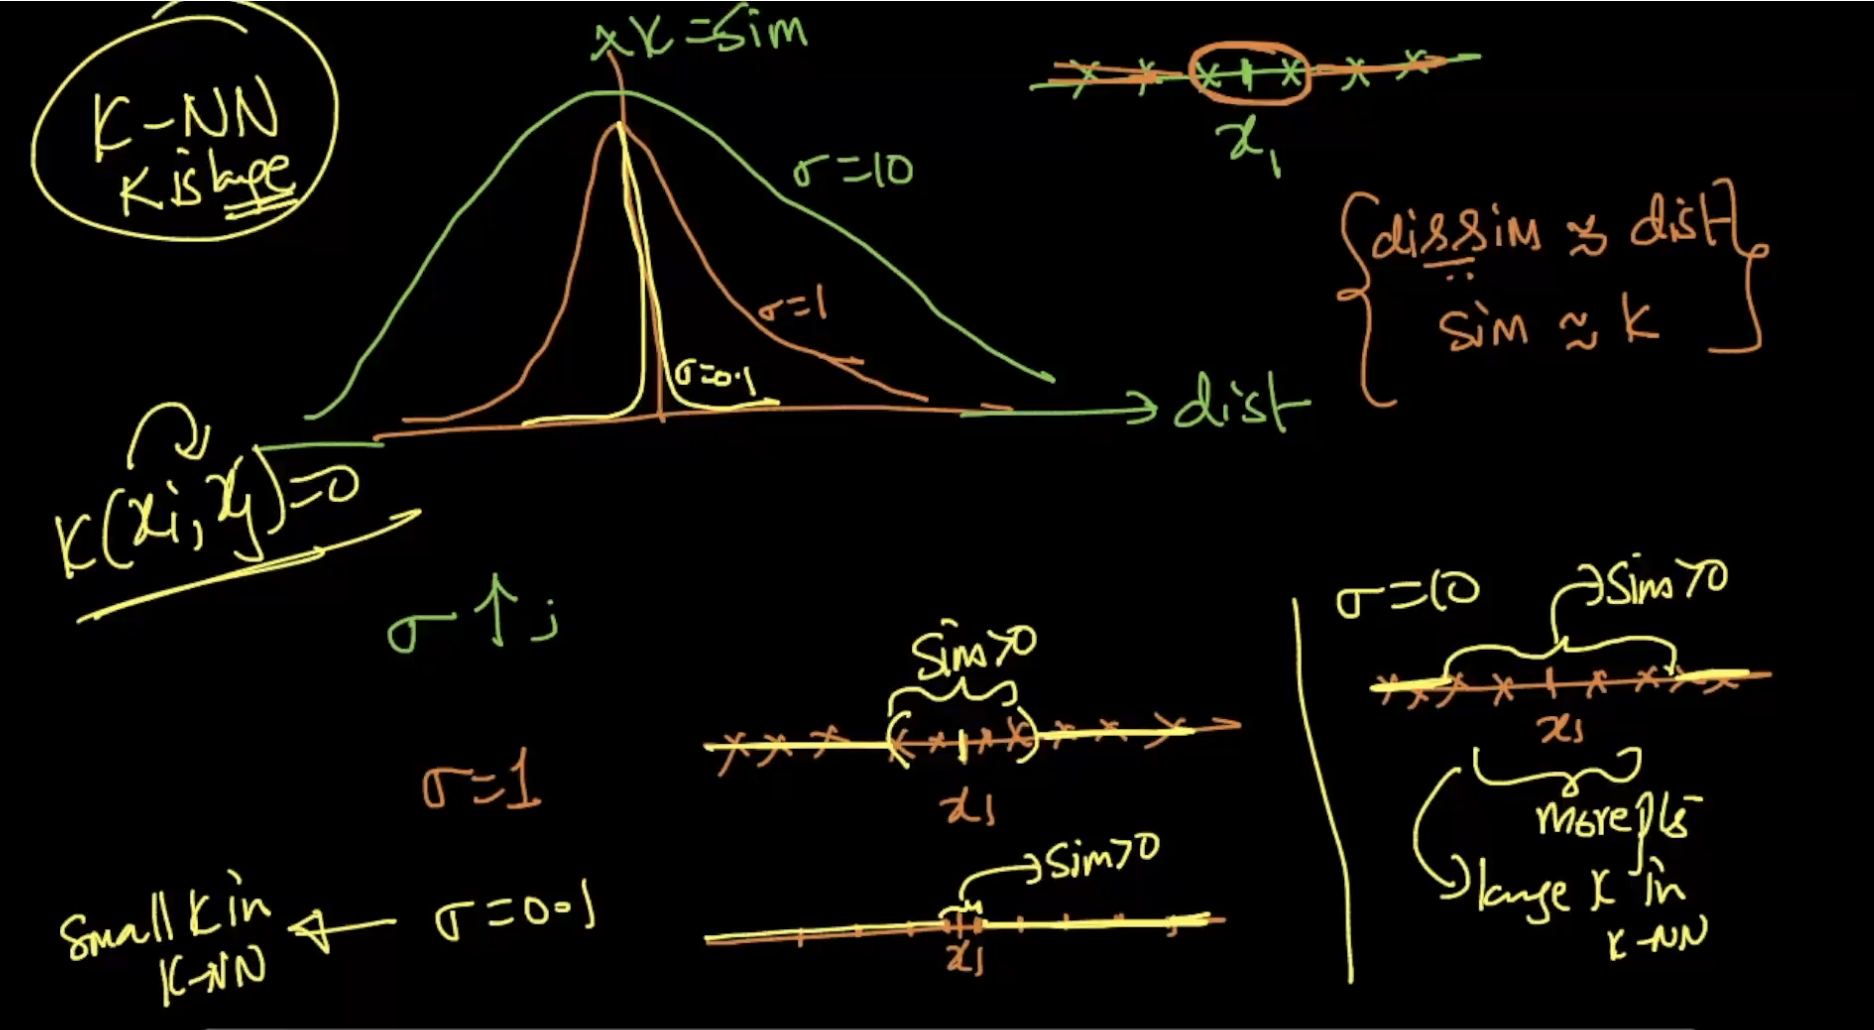 K-NN
K is large
K=Sim
σ=10
x₁
σ=1
σ=0.1
dist
dissim ≈ dist
sim ≈ K
K(xi, xj)=0
σ↑;
σ=1
Sim>0
x₁
Small K in
K-NN
σ=0.1
Sim>0
x₁
σ=10
Sim>0
x₁
more pts
large K in
K-NN